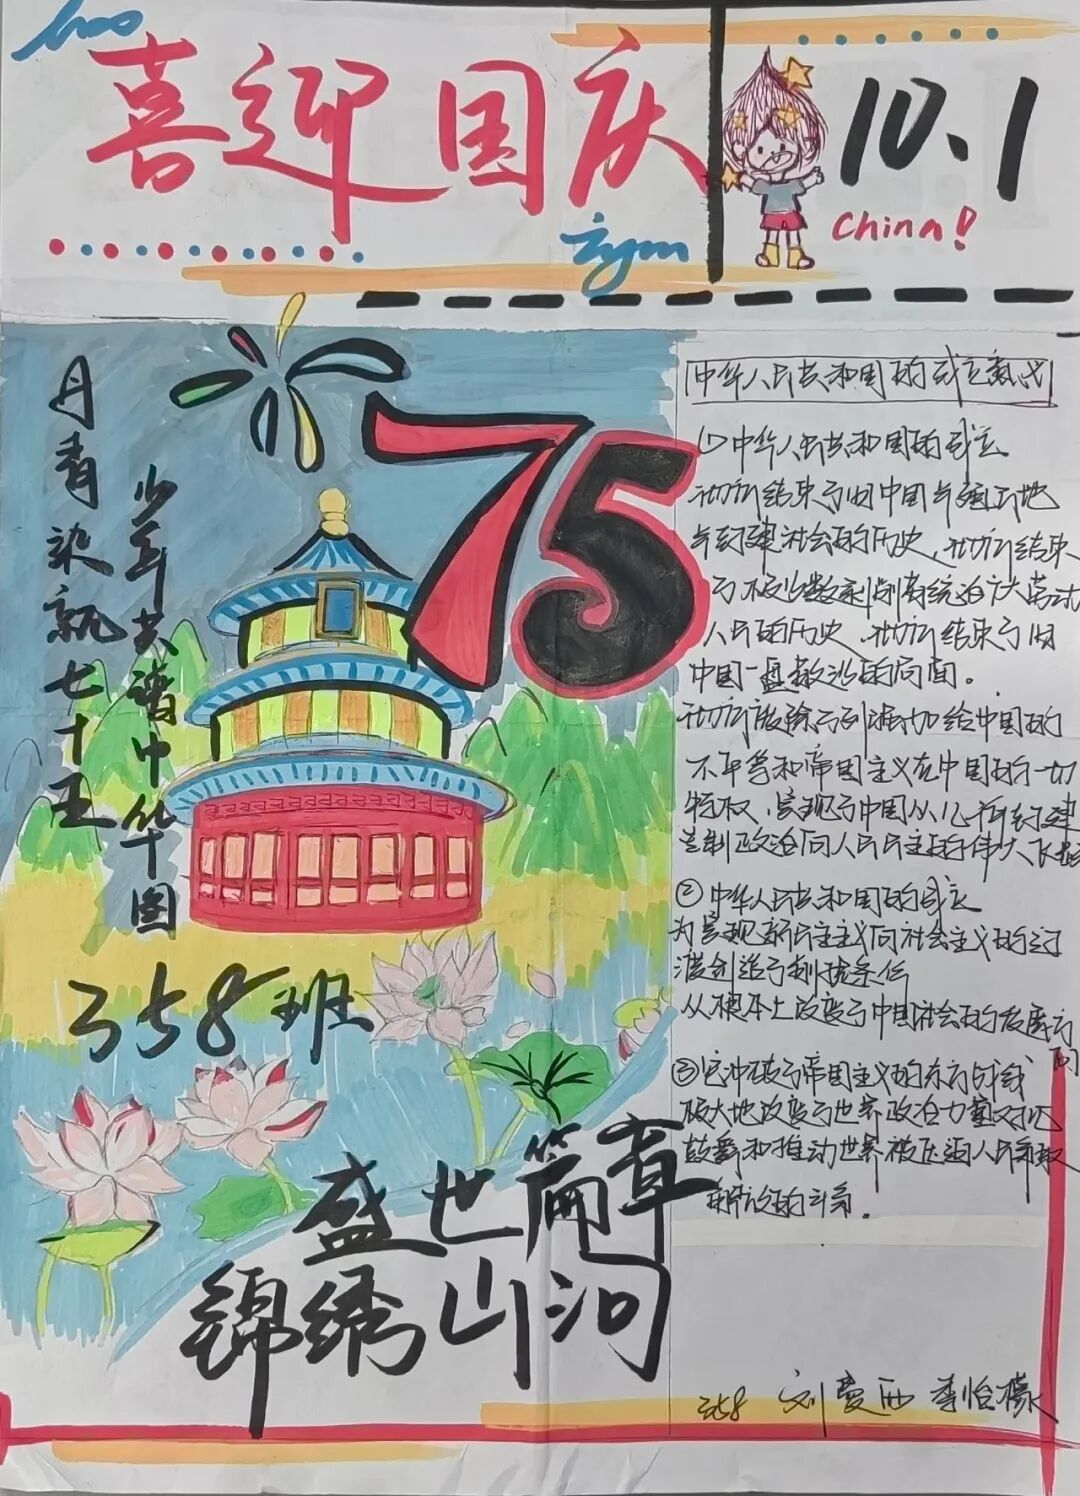 喜迎国庆
10.1
China!
zym
75
丹青染就七十五
少年共谱中华图
358班
盛世篇章
锦绣山河
中华人民共和国的成立意义
①中华人民共和国的成立
彻底结束了旧中国半殖民地
半封建社会的历史,彻底结束
了极少数剥削者统治广大劳动
人民的历史,彻底结束了旧
中国一盘散沙的局面。
彻底废除了列强加给中国的
不平等和帝国主义在中国的一切
特权,实现了中国从几千年封建
专制政治向人民民主的伟大飞跃
②中华人民共和国的成立
为实现新民主主义向社会主义的过
渡创造了前提条件
从根本上改变了中国社会的发展方向
③它冲破了帝国主义的东方战线
极大地改变了世界政治力量对比
鼓舞和推动世界被压迫人民争取
解放的斗争.
358 刘 西 李怡檬